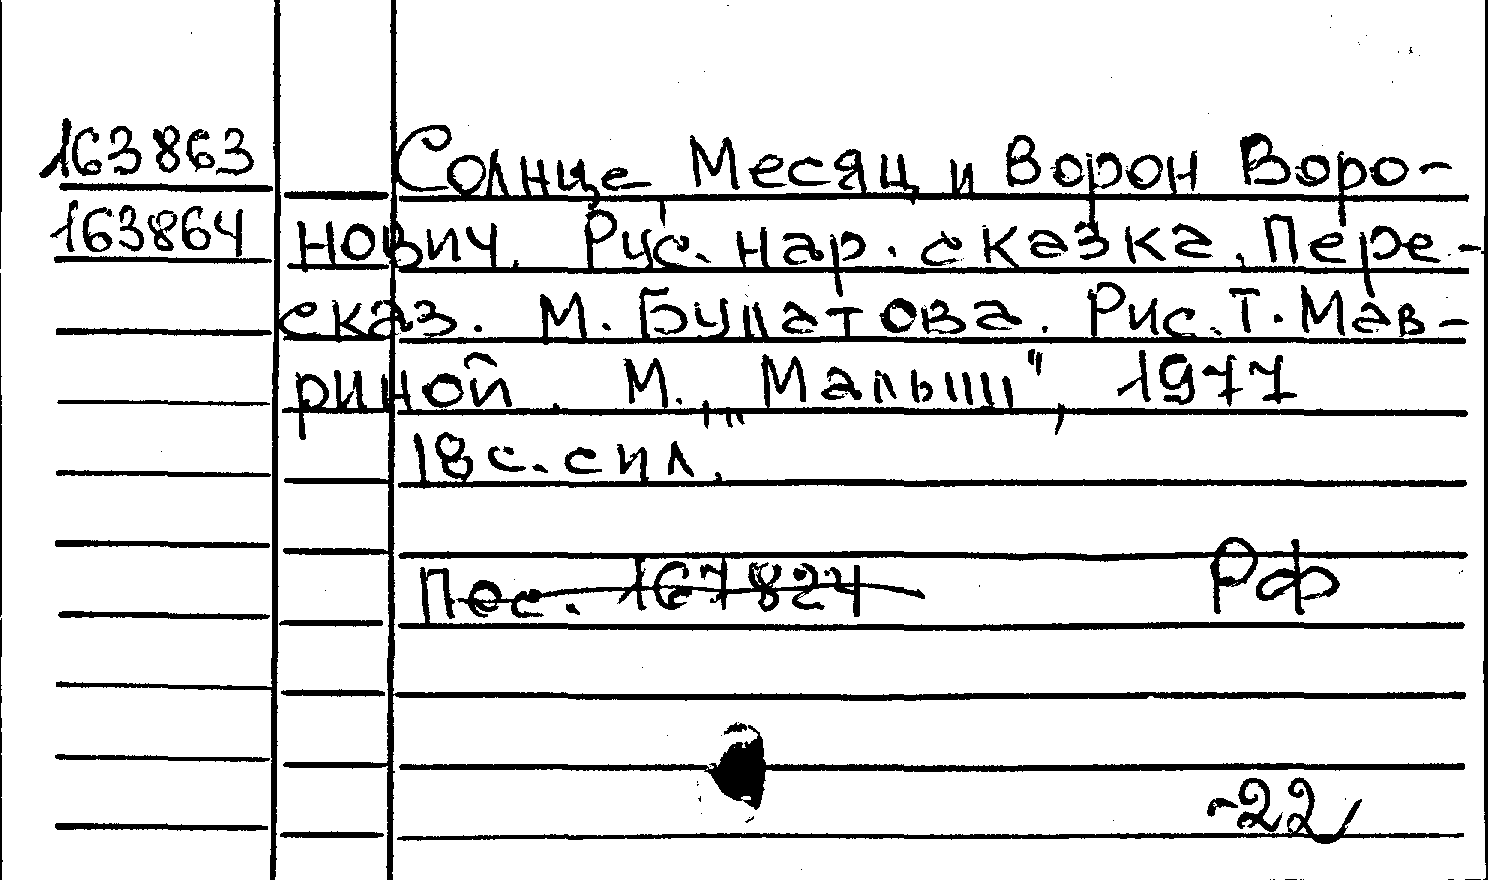 163863 Солнце Месяц и Ворон Воро-
163864 нович. Рус. нар. сказка. Пере-
сказ. М. Булатова. Рис. Т. Мав-
риной. М., "Малыш", 1977
18 с. с ил.
Пос. 167824 РФ
-22